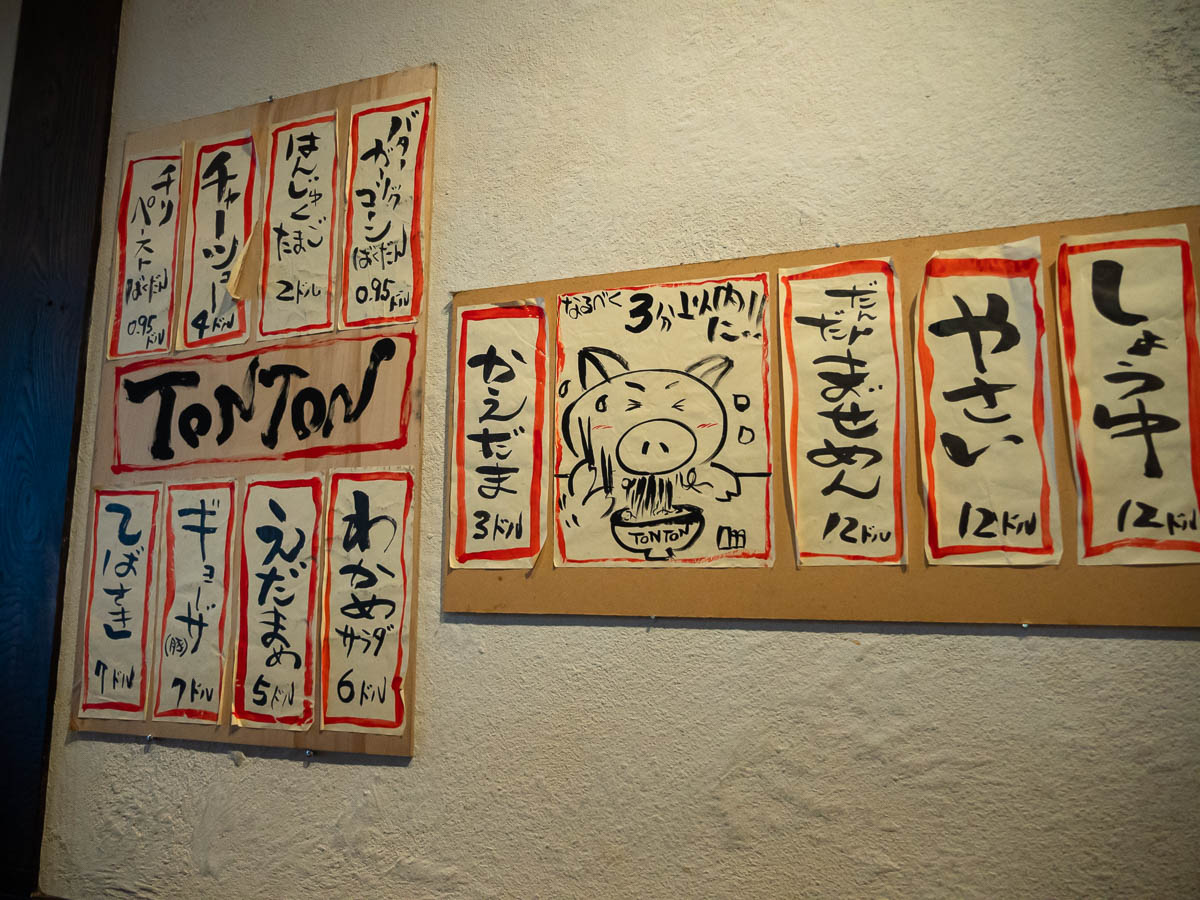 バターガーリック
コーン
ばくだん
0.95ドル
はんじゅく
たまご
2ドル
チャーシュー
4ドル
チリ
ペースト
ばくだん
0.95
ドル
TONTON
わかめ
サラダ
6ドル
えだまめ
5ドル
ギョーザ
(豚)
7ドル
てばさき
7ドル
しょうゆ
12ドル
やさい
12ドル
だんだん
まぜめん
12ドル
なるべく
3分以内!!
に…
TONTON
かえだま
3ドル